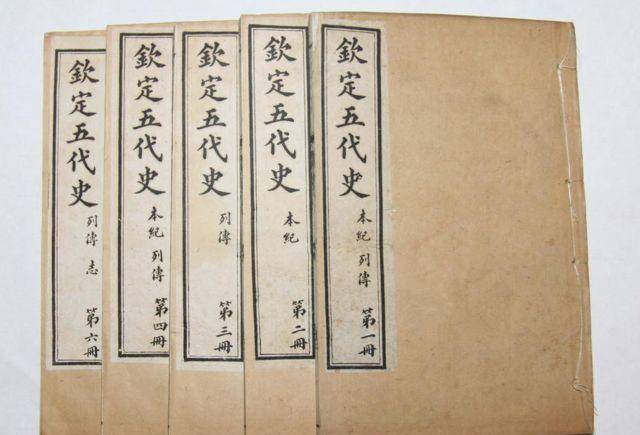 欽定五代史
本紀 列傳
第一冊
欽定五代史
本紀
第二冊
欽定五代史
列傳
第三冊
欽定五代史
本紀 列傳
第四冊
欽定五代史
列傳 志
第六冊